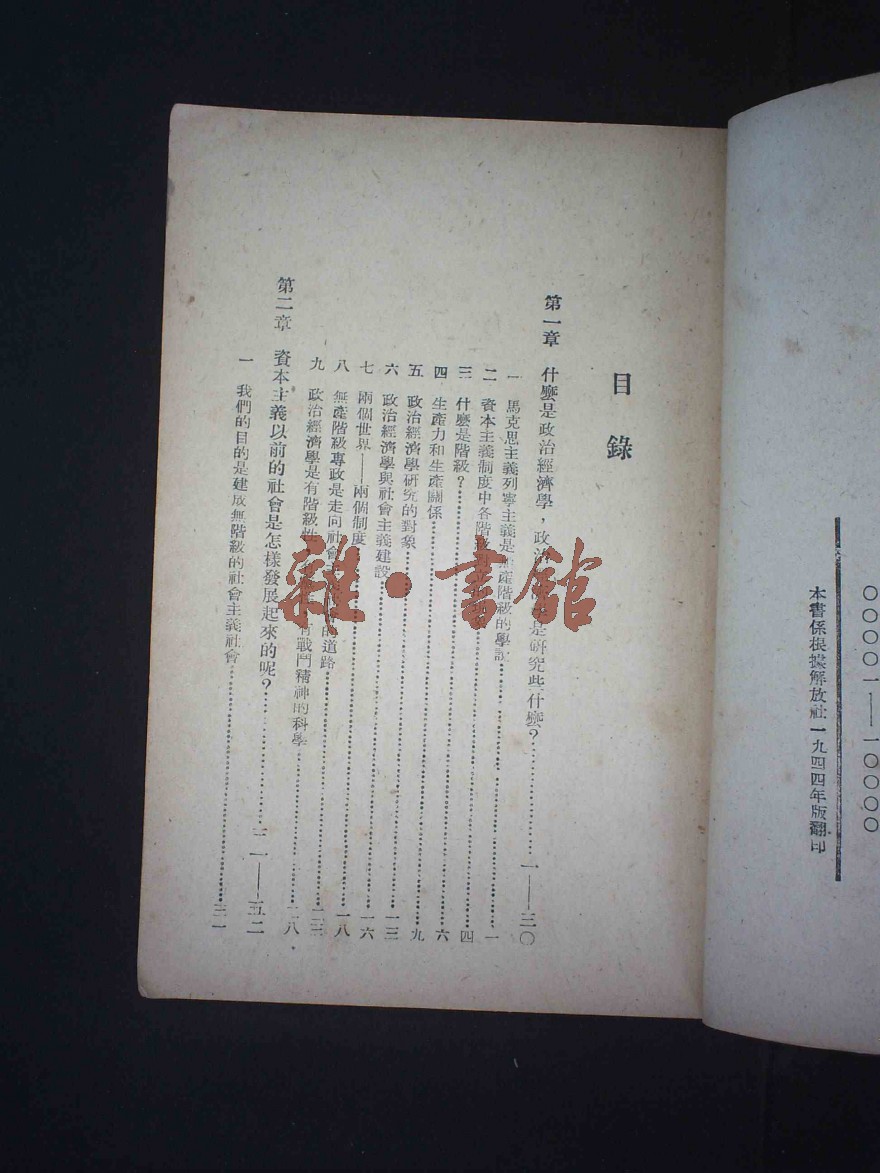 〇〇〇〇一——一〇〇〇〇
本書係根據解放社一九四四年版翻印
目錄
第一章 什麼是政治經濟學，政治是研究些什麼？……一——三〇
一 馬克思主義列寧主義是無產階級的學說……一
二 資本主義制度中各階級……四
三 什麼是階級？……六
四 生產力和生產關係……九
五 政治經濟學研究的對象……一三
六 政治經濟學與社會主義建設……一六
七 兩個世界——兩個制度……一八
八 無產階級專政是走向社會的道路……二三
九 政治經濟學是有階級性有戰鬥精神的科學……二八
第二章 資本主義以前的社會是怎樣發展起來的呢？……三一——五二
一 我們的目的是建成無階級的社會主義社會……三一
雜·書館